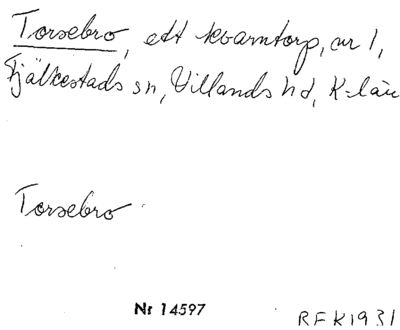 Torsebro, ett kvarntorp, nr 1,
Fjälkestads sn, Villands hd, K-län
Torsebro
Nr 14597
RFK1931